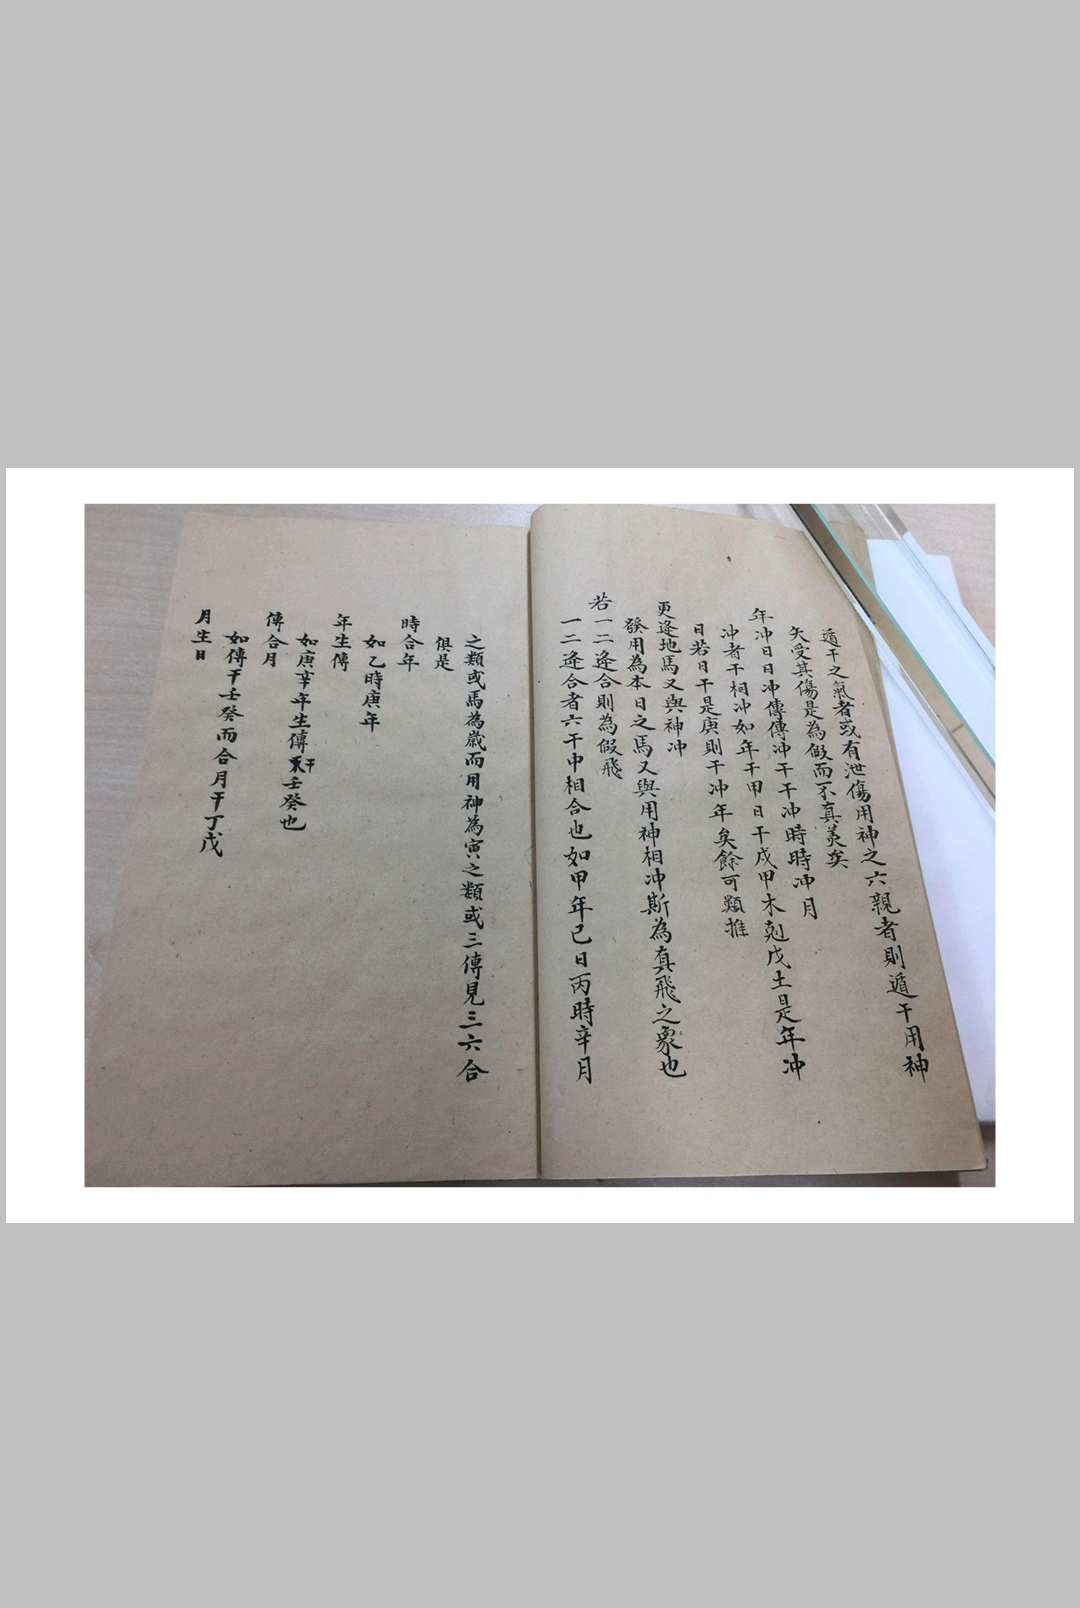 遁干之氣者或有泄傷用神之六親者則遁干用神
矢受其傷是為假而不真美矣
年冲日日冲傳傳冲干干冲時時冲月
冲者干相冲如年干甲日干戍甲木剋戊土是年冲
日若日干是庚則干冲年矣餘可類推
更逢地馬又與神冲
發用為本日之馬又與用神相冲斯為真飛之象也
若一二逢合則為假飛
一二逢合者六干中相合也如甲年己日丙時辛月
之類或馬為歲而用神為寅之類或三傳見三六合
俱是
時合年
如乙時庚年
年生傳
如庚辛年生傳干壬癸也
傳合月
如傳干壬癸而合月干丁戊
月生日